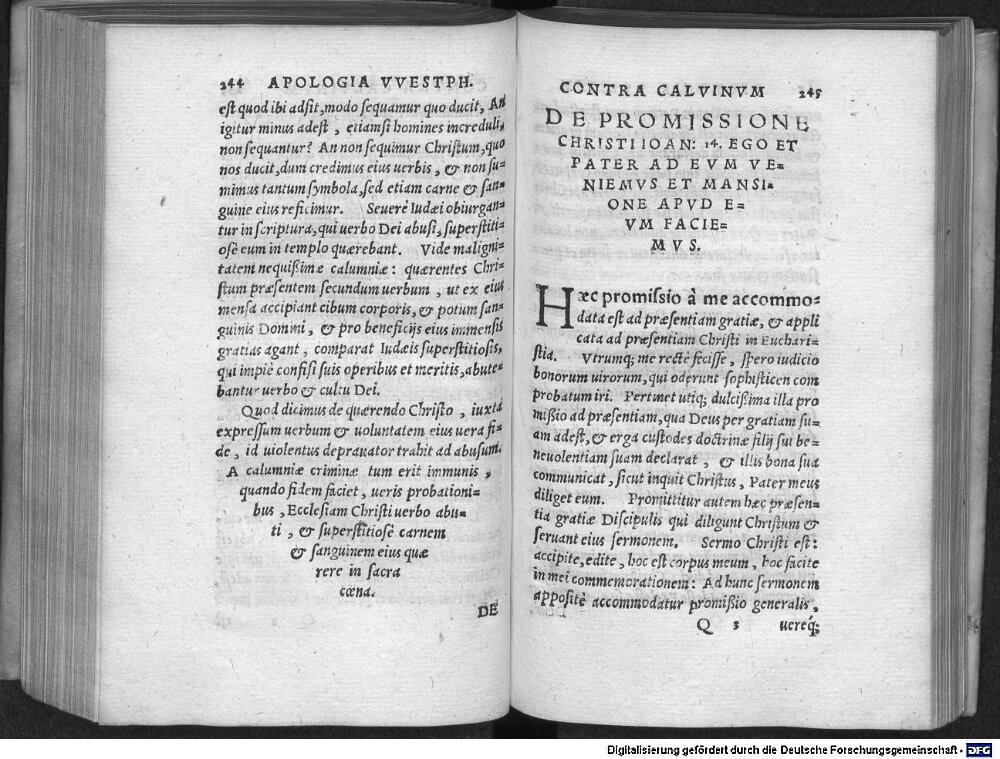 244 APOLOGIA VVESTPH.
est quod ibi adsit, modo sequamur quo ducit, An
igitur minus adest, etiamsi homines increduli,
non sequantur? An non sequimur Christum, quo
nos ducit, dum credimus eius uerbis, & non su=
mimus tantum symbola, sed etiam carne & san=
guine eius reficimur. Seuerè Iudæi obiurgan=
tur in scriptura, qui uerbo Dei abusi, superstiti=
osè eum in templo quærebant. Vide maligni=
tatem nequißimæ calumniæ: quærentes Chri=
stum præsentem secundum uerbum, ut ex eius
mensa accipiant cibum corporis, & potum san=
guinis Domini, & pro beneficijs eius immensis
gratias agant, comparat Iudæis superstitiosis,
qui impiè confisi suis operibus et meritis, abute=
bantur uerbo & cultu Dei.
Quod dicimus de quærendo Christo, iuxta
expressum uerbum & uoluntatem eius uera fi=
de, id uiolentus deprauator trahit ad abusum.
A calumniæ crimine tum erit immunis,
quando fidem faciet, ueris probationi=
bus, Ecclesiam Christi uerbo abu=
ti, & superstitiosè carnem
& sanguinem eius quæ
rere in sacra
cœna.
DE
CONTRA CALVINVM 245
DE PROMISSIONE
CHRISTI IOAN: 14. EGO ET
PATER AD EVM VE=
NIEMVS ET MANSI=
ONE APVD E=
VM FACIE=
MVS.
Hæc promissio à me accommo=
data est ad præsentiam gratiæ, & appli
cata ad præsentiam Christi in Euchari=
stia. Vtrumq; me rectè fecisse, spero iudicio
bonorum uirorum, qui oderunt sophisticen com
probatum iri. Pertinet utiq; dulcißima illa pro
mißio ad præsentiam, qua Deus per gratiam su=
am adest, & erga custodes doctrinæ filij sui be=
neuolentiam suam declarat, & illis bona sua
communicat, sicut inquit Christus, Pater meus
diliget eum. Promittitur autem hæc præsen=
tia gratiæ Discipulis qui diligunt Christum &
seruant eius sermonem. Sermo Christi est:
accipite, edite, hoc est corpus meum, hoc facite
in mei commemorationem: Ad hunc sermonem
appositè accommodatur promißio generalis,
Q 3 uereq́;
Digitalisierung gefördert durch die Deutsche Forschungsgemeinschaft - DFG